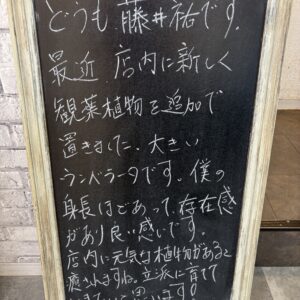 どうも藤井祐です.
最近 店内に新しく
観葉植物を追加で
置きました.大きい
ランドラータです。僕の
身長ほどあって存在感
があり良い感じです。
店内に元気な植物があると
癒されますね。立派に育てて
いきたいと思います!